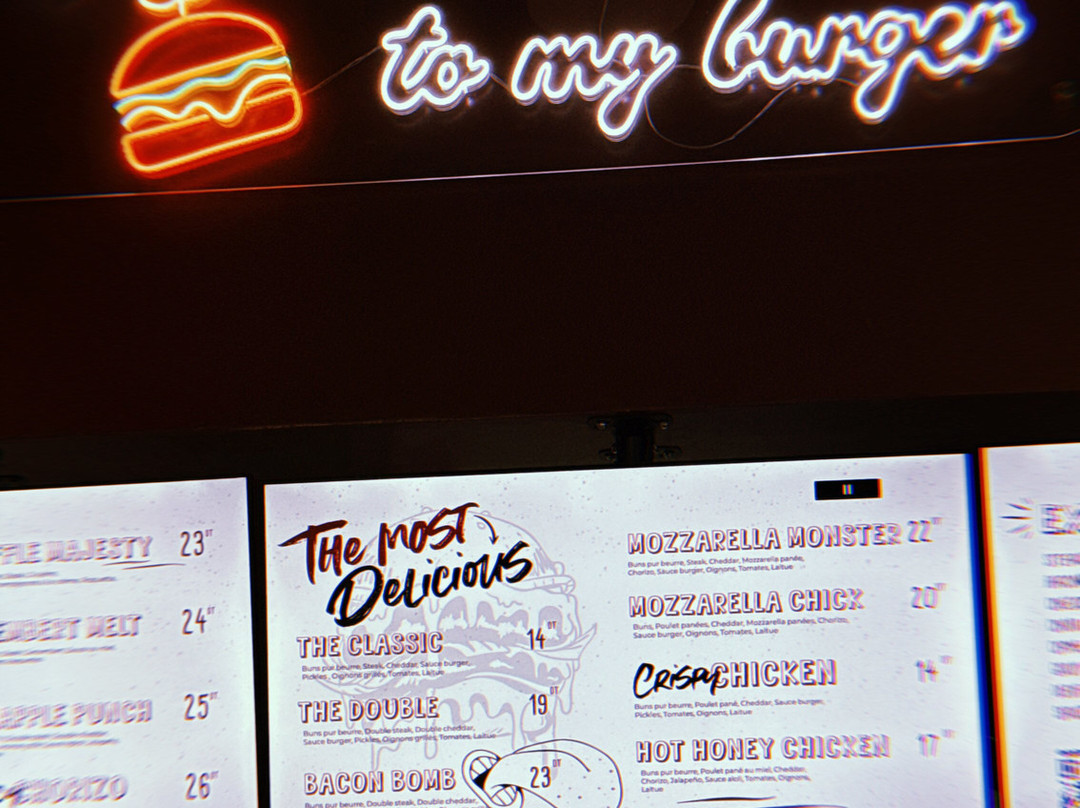 to my burger
MAJESTY 23DT
MELT 24DT
PUNCH 25DT
CHORIZO 26DT
THE MOST
Delicious
THE CLASSIC 14DT
Buns pur beurre, Steak, Cheddar, Sauce burger,
Pickles, Oignons grillés, Tomates, Laitue
THE DOUBLE 19DT
Buns pur beurre, Double steak, Double cheddar,
Sauce burger, Pickles, Oignons grillés, Tomates, Laitue
BACON BOMB 23DT
Buns pur beurre, Double steak, Double cheddar,
MOZZARELLA MONSTER 22DT
Buns pur beurre, Steak, Cheddar, Mozzarella panée,
Chorizo, Sauce burger, Oignons, Tomates, Laitue
MOZZARELLA CHICK 20DT
Buns, Poulet panées, Cheddar, Mozzarella panées, Chorizo,
Sauce burger, Oignons, Tomates, Laitue
CRISPY CHICKEN 14DT
Buns pur beurre, Poulet pané, Cheddar, Sauce burger,
Pickles, Tomates, Oignons, Laitue
HOT HONEY CHICKEN 17DT
Buns pur beurre, Poulet pané au miel, Cheddar,
Chorizo, Jalapeño, Sauce aioli, Tomates, Oignons,
Laitue